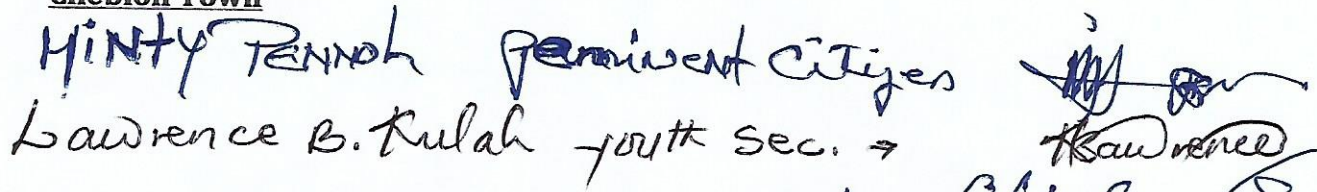 Minty Pennoh Perminent Citizen
Lawrence B. Kulah youth Sec. → Lawrence